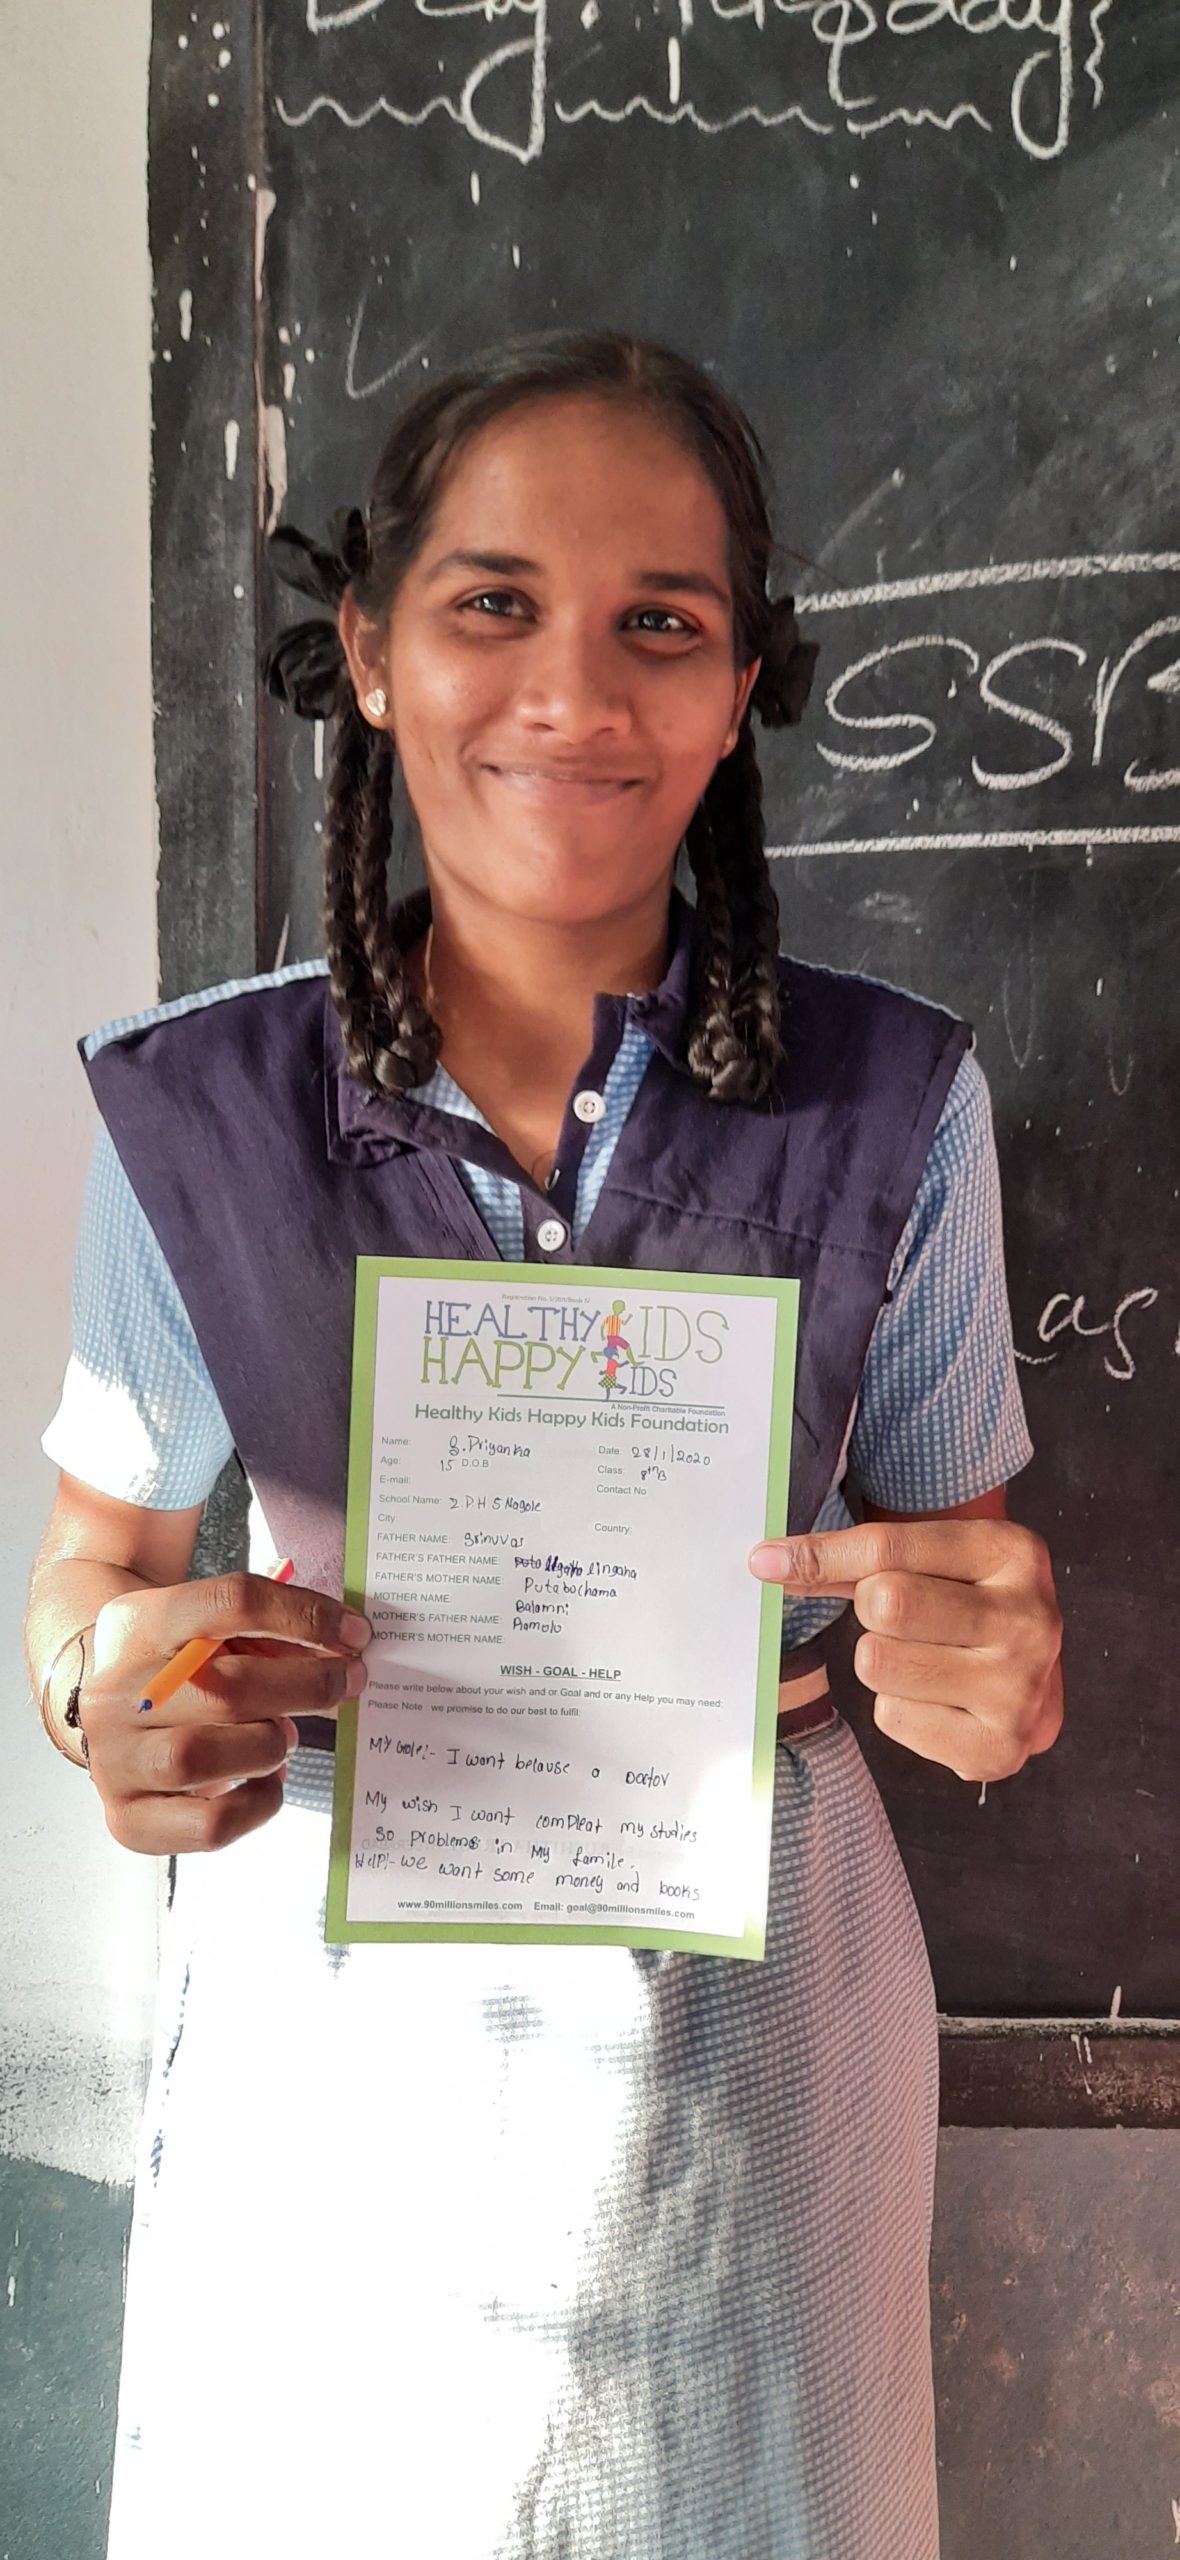 Day: Tuesday
SSP
as
HEALTHY KIDS
HAPPY KIDS
A Non-Profit Charitable Foundation
Healthy Kids Happy Kids Foundation
Name: g. Priyanka Date: 28/1/2020
Age: 15 D.O.B Class: 8th B
E-mail: Contact No
School Name: Z.P.H S Nagole
City: Country:
FATHER NAME: Srinuvas
FATHER'S FATHER NAME: lingaha
FATHER'S MOTHER NAME: Putabochama
MOTHER NAME: Balamni
MOTHER'S FATHER NAME: Ramolu
MOTHER'S MOTHER NAME:
WISH - GOAL - HELP
Please write below about your wish and or Goal and or any Help you may need:
Please Note : we promise to do our best to fulfil:
My Gole:- I want belause a Doctor
My wish I want compleat my studies
so problems in My famile.
HelP:- we want some money and books
www.90millionsmiles.com Email: goal@90millionsmiles.com